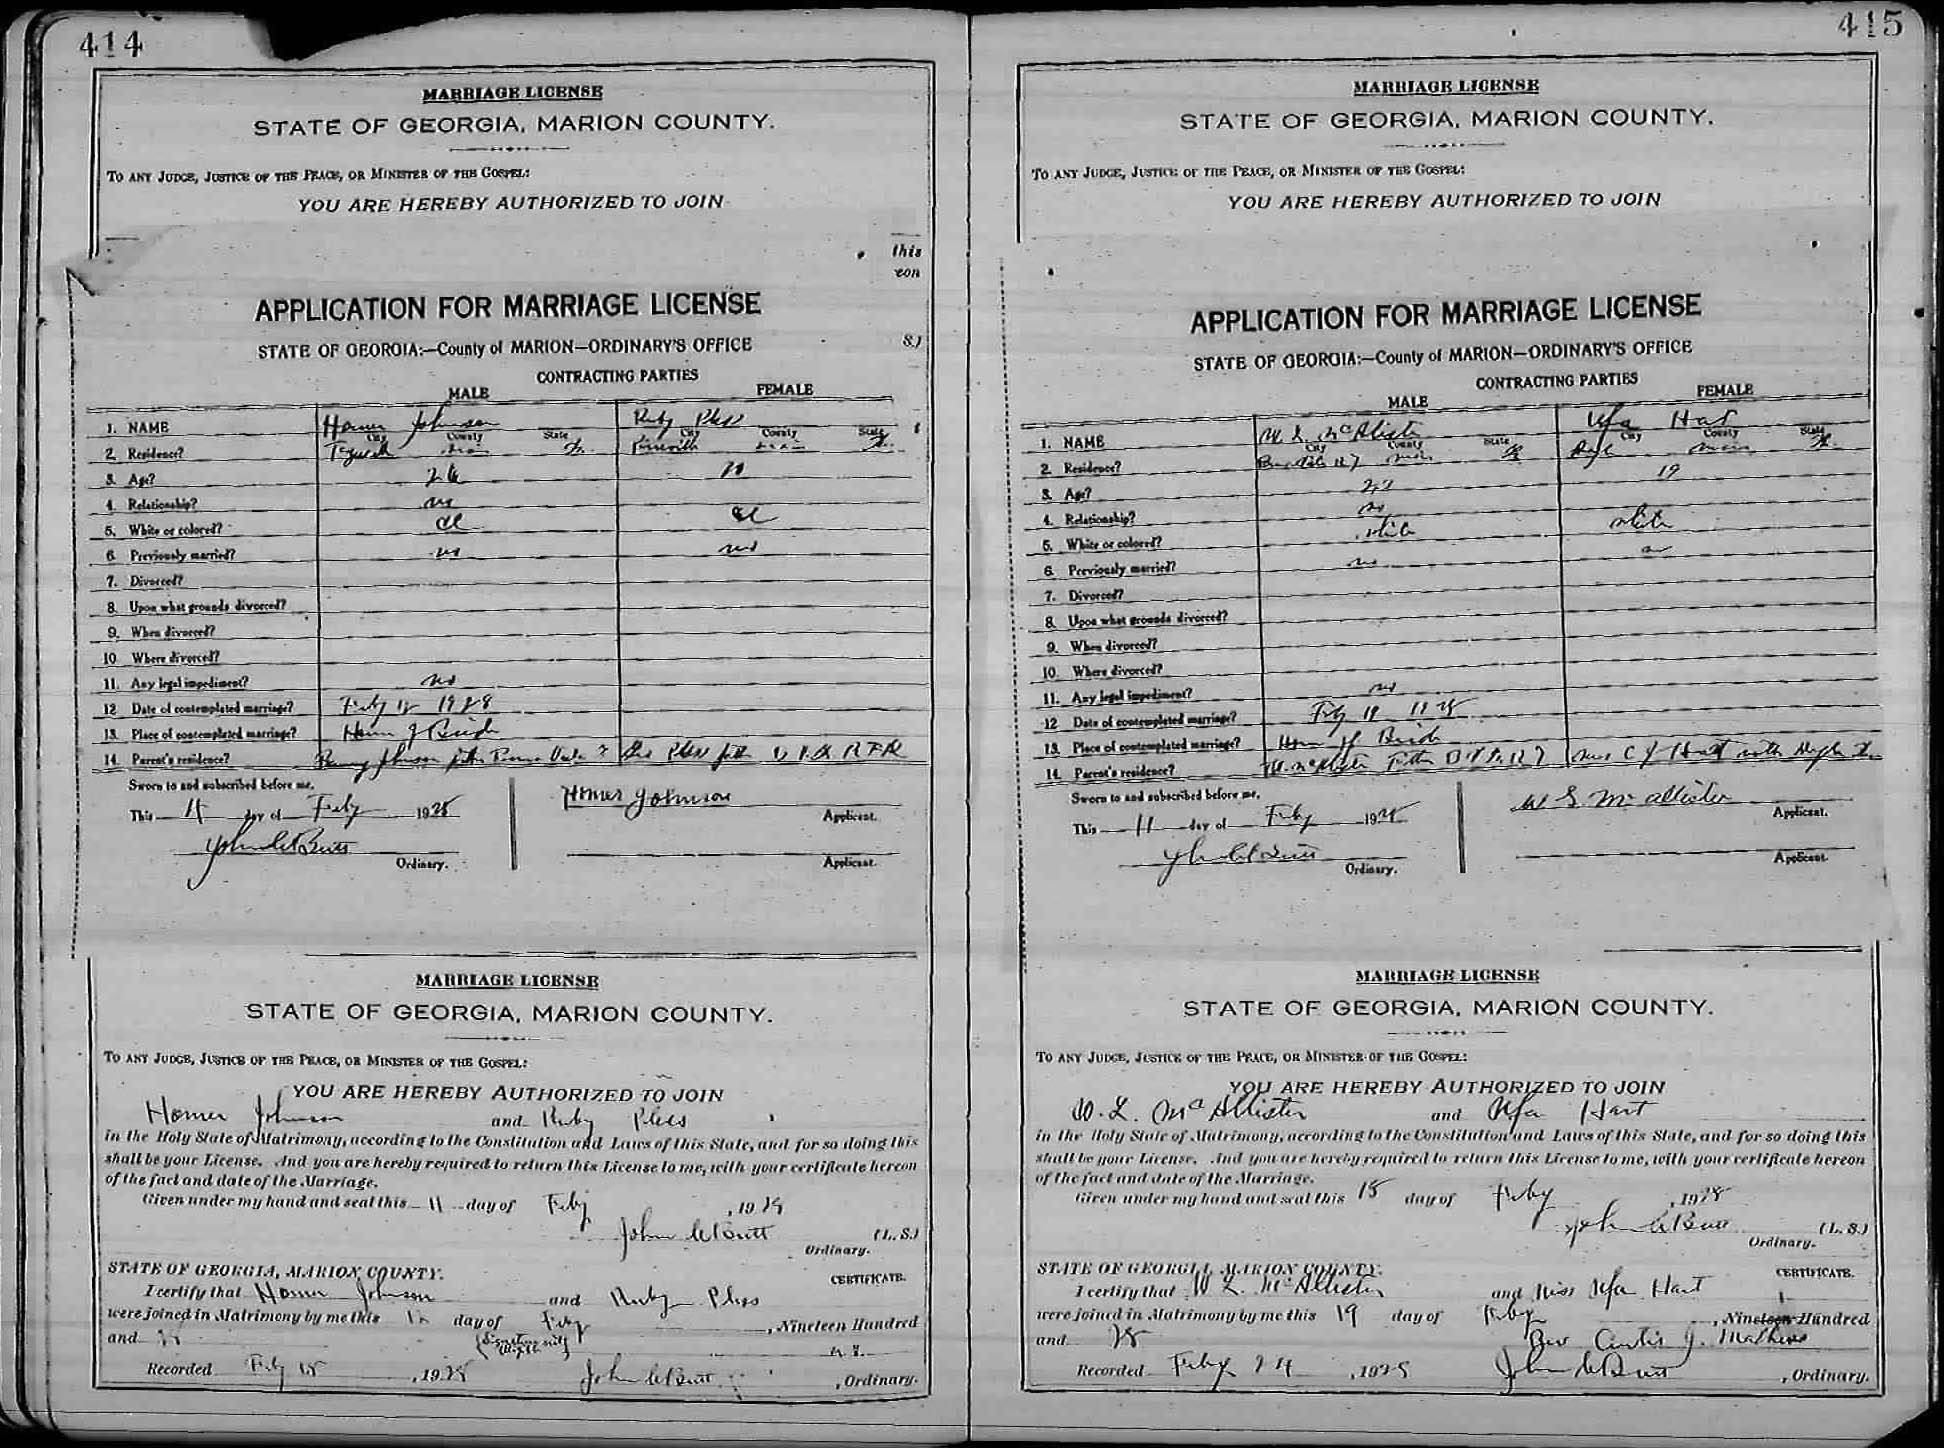 414
MARRIAGE LICENSE
STATE OF GEORGIA, MARION COUNTY.
TO ANY JUDGE, JUSTICE OF THE PEACE, OR MINISTER OF THE GOSPEL:
YOU ARE HEREBY AUTHORIZED TO JOIN
this
eon
APPLICATION FOR MARRIAGE LICENSE
S.)
STATE OF GEORGIA:—County of MARION—ORDINARY'S OFFICE
CONTRACTING PARTIES
MALE FEMALE
1. NAME Homer Johnson Ruby Pless
City County State City County State
2. Residence?
3. Age? 26
4. Relationship? no
5. White or colored? Col Col
6. Previously married? no no
7. Divorced?
8. Upon what grounds divorced?
9. When divorced?
10 Where divorced?
11. Any legal impediment? no
12 Date of contemplated marriage? Feby 12 1928
13. Place of contemplated marriage? Home of Bride
14. Parent's residence? Johnson Pless
Sworn to and subscribed before me,
This 11 day of Feby 1928 Homer Johnson
Applicant.
John C Butt
Ordinary. Applicant.
MARRIAGE LICENSE
STATE OF GEORGIA, MARION COUNTY.
TO ANY JUDGE, JUSTICE OF THE PEACE, OR MINISTER OF THE GOSPEL:
YOU ARE HEREBY AUTHORIZED TO JOIN
Homer Johnson and Ruby Pless
in the Holy State of Matrimony, according to the Constitution and Laws of this State, and for so doing this
shall be your License. And you are hereby required to return this License to me, with your certificate hereon
of the fact and date of the Marriage.
Given under my hand and seal this 11 day of Feby, 1928
John C Butt (L. S.)
Ordinary.
STATE OF GEORGIA, MARION COUNTY. CERTIFICATE.
I certify that Homer Johnson and Ruby Pless
were joined in Matrimony by me this 12 day of Feby, Nineteen Hundred
and 28
Recorded Feby 18, 1928 John C Butt, Ordinary.
415
MARRIAGE LICENSE
STATE OF GEORGIA, MARION COUNTY.
TO ANY JUDGE, JUSTICE OF THE PEACE, OR MINISTER OF THE GOSPEL:
YOU ARE HEREBY AUTHORIZED TO JOIN
APPLICATION FOR MARRIAGE LICENSE
STATE OF GEORGIA:—County of MARION—ORDINARY'S OFFICE
CONTRACTING PARTIES
MALE FEMALE
1. NAME W. L. McAllister Ufa Hart
City County State City County State
2. Residence?
3. Age? 19
4. Relationship? no
5. White or colored? white white
6. Previously married? no no
7. Divorced?
8. Upon what grounds divorced?
9. When divorced?
10. Where divorced?
11. Any legal impediment? no
12 Date of contemplated marriage? Feby 19 1928
13. Place of contemplated marriage? Home of Bride
14. Parent's residence?
Sworn to and subscribed before me,
This 11 day of Feby 1928 W S McAllister
Applicant.
John C Butt
Ordinary. Applicant.
MARRIAGE LICENSE
STATE OF GEORGIA, MARION COUNTY.
TO ANY JUDGE, JUSTICE OF THE PEACE, OR MINISTER OF THE GOSPEL:
YOU ARE HEREBY AUTHORIZED TO JOIN
W. L. McAllister and Ufa Hart
in the Holy State of Matrimony, according to the Constitution and Laws of this State, and for so doing this
shall be your License. And you are hereby required to return this License to me, with your certificate hereon
of the fact and date of the Marriage.
Given under my hand and seal this 18 day of Feby, 1928
John C Butt (L. S.)
Ordinary.
STATE OF GEORGIA, MARION COUNTY. CERTIFICATE.
I certify that W L McAllister and Miss Ufa Hart
were joined in Matrimony by me this 19 day of Feby, Nineteen Hundred
and 28 Rev Curtis J. Mathews
Recorded Feby 24, 1928 John C Butt, Ordinary.